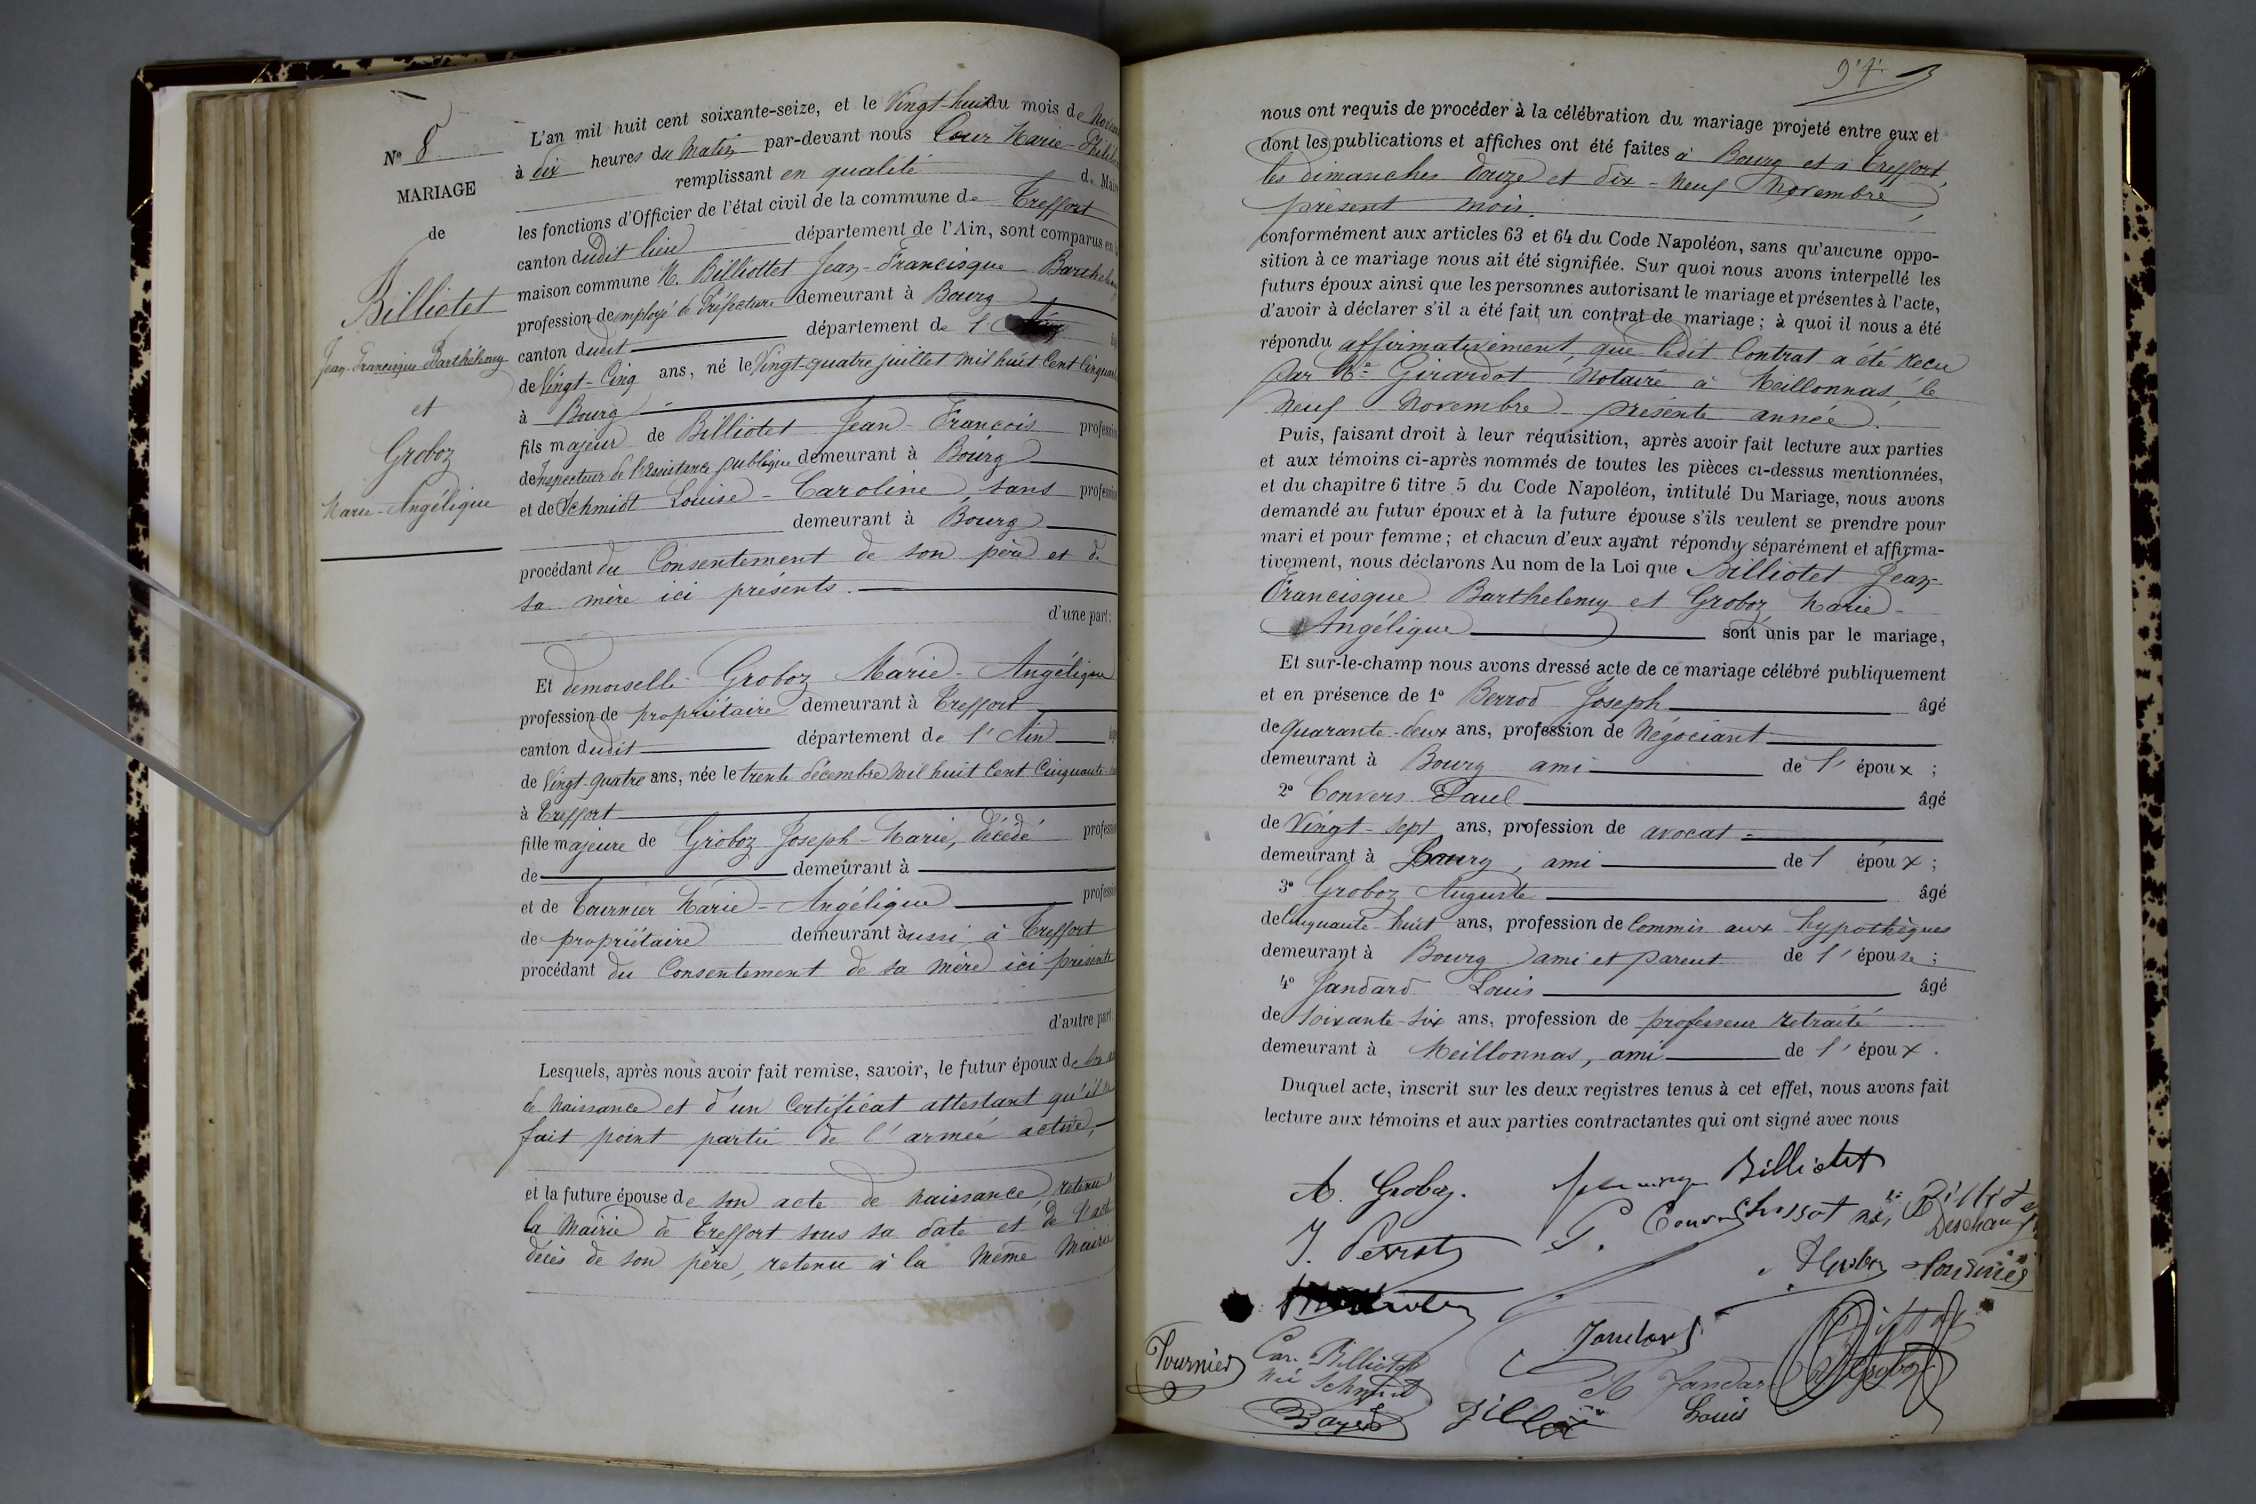 N° 8
MARIAGE
de
Billiotet
Jean-Francisque Barthélemy
et
Groboz
Marie-Angélique
L'an mil huit cent soixante-seize, et le Vingt-huit du mois de
à dix heures du Matin par-devant nous Cour Marie-
remplissant en qualité de Maire
les fonctions d'Officier de l'état civil de la commune de Treffort
canton dudit lieu département de l'Ain, sont comparus en
maison commune M. Billiottet Jean-Francisque
profession de employé de Préfecture demeurant à Bourg
canton dudit département de l'
de Vingt-Cinq ans, né le Vingt-quatre juillet mil huit Cent
à Bourg
fils majeur de Billiotet Jean-François profession
de Inspecteur de l'assistance publique demeurant à Bourg
et de Schmidt Louise-Caroline, sans profession
demeurant à Bourg
procédant du Consentement de son père et de
sa mère ici présents.
d'une part:
Et demoiselle Groboz Marie-Angélique
profession de propriétaire demeurant à Treffort
canton dudit département de l'Ain
de Vingt-quatre ans, née le trente décembre mil huit Cent Cinquante
à Treffort
fille majeure de Groboz Joseph-Marie, décédé profession
de demeurant à
et de Tournier Marie-Angélique profession
de propriétaire demeurant aussi à Treffort
procédant du Consentement de sa mère ici présente
d'autre part.
Lesquels, après nous avoir fait remise, savoir, le futur époux de son
de Naissance et d'un Certificat attestant qu'il
fait point partie de l'armée active,
et la future épouse de son acte de naissance, retenu
la Mairie de Treffort sous sa date et de l'acte
décès de son père, retenu à la même Mairie
97
nous ont requis de procéder à la célébration du mariage projeté entre eux et
dont les publications et affiches ont été faites à Bourg et à Treffort,
les dimanches douze et dix-neuf Novembre
présent mois.
conformément aux articles 63 et 64 du Code Napoléon, sans qu'aucune oppo-
sition à ce mariage nous ait été signifiée. Sur quoi nous avons interpellé les
futurs époux ainsi que les personnes autorisant le mariage et présentes à l'acte,
d'avoir à déclarer s'il a été fait un contrat de mariage; à quoi il nous a été
répondu affirmativement, que ledit Contrat a été recu
par Me Girardot Notaire à Meillonnas, le
Neuf Novembre présente année.
Puis, faisant droit à leur réquisition, après avoir fait lecture aux parties
et aux témoins ci-après nommés de toutes les pièces ci-dessus mentionnées,
et du chapitre 6 titre 5 du Code Napoléon, intitulé Du Mariage, nous avons
demandé au futur époux et à la future épouse s'ils veulent se prendre pour
mari et pour femme; et chacun d'eux ayant répondu séparément et affirma-
tivement, nous déclarons Au nom de la Loi que Billiotet Jean-
Francisque Barthelemy et Groboz Marie-
Angélique sont unis par le mariage,
Et sur-le-champ nous avons dressé acte de ce mariage célébré publiquement
et en présence de 1° Berrod Joseph âgé
de quarante-deux ans, profession de Négociant
demeurant à Bourg ami de l'époux;
2° Convers Paul âgé
de Vingt-sept ans, profession de avocat
demeurant à Bourg, ami de l'époux;
3° Groboz Auguste âgé
de Cinquante-huit ans, profession de Commis aux hypothèques
demeurant à Bourg ami et parent de l'épouse;
4° Jandard Louis âgé
de soixante-six ans, profession de professeur retraité
demeurant à Meillonnas, ami de l'époux.
Duquel acte, inscrit sur les deux registres tenus à cet effet, nous avons fait
lecture aux témoins et aux parties contractantes qui ont signé avec nous
A. Groboz. Billiotet
P. Convers
Tournier
Jandard
Tournier Car. Billiotet
née Schmidt
Louis